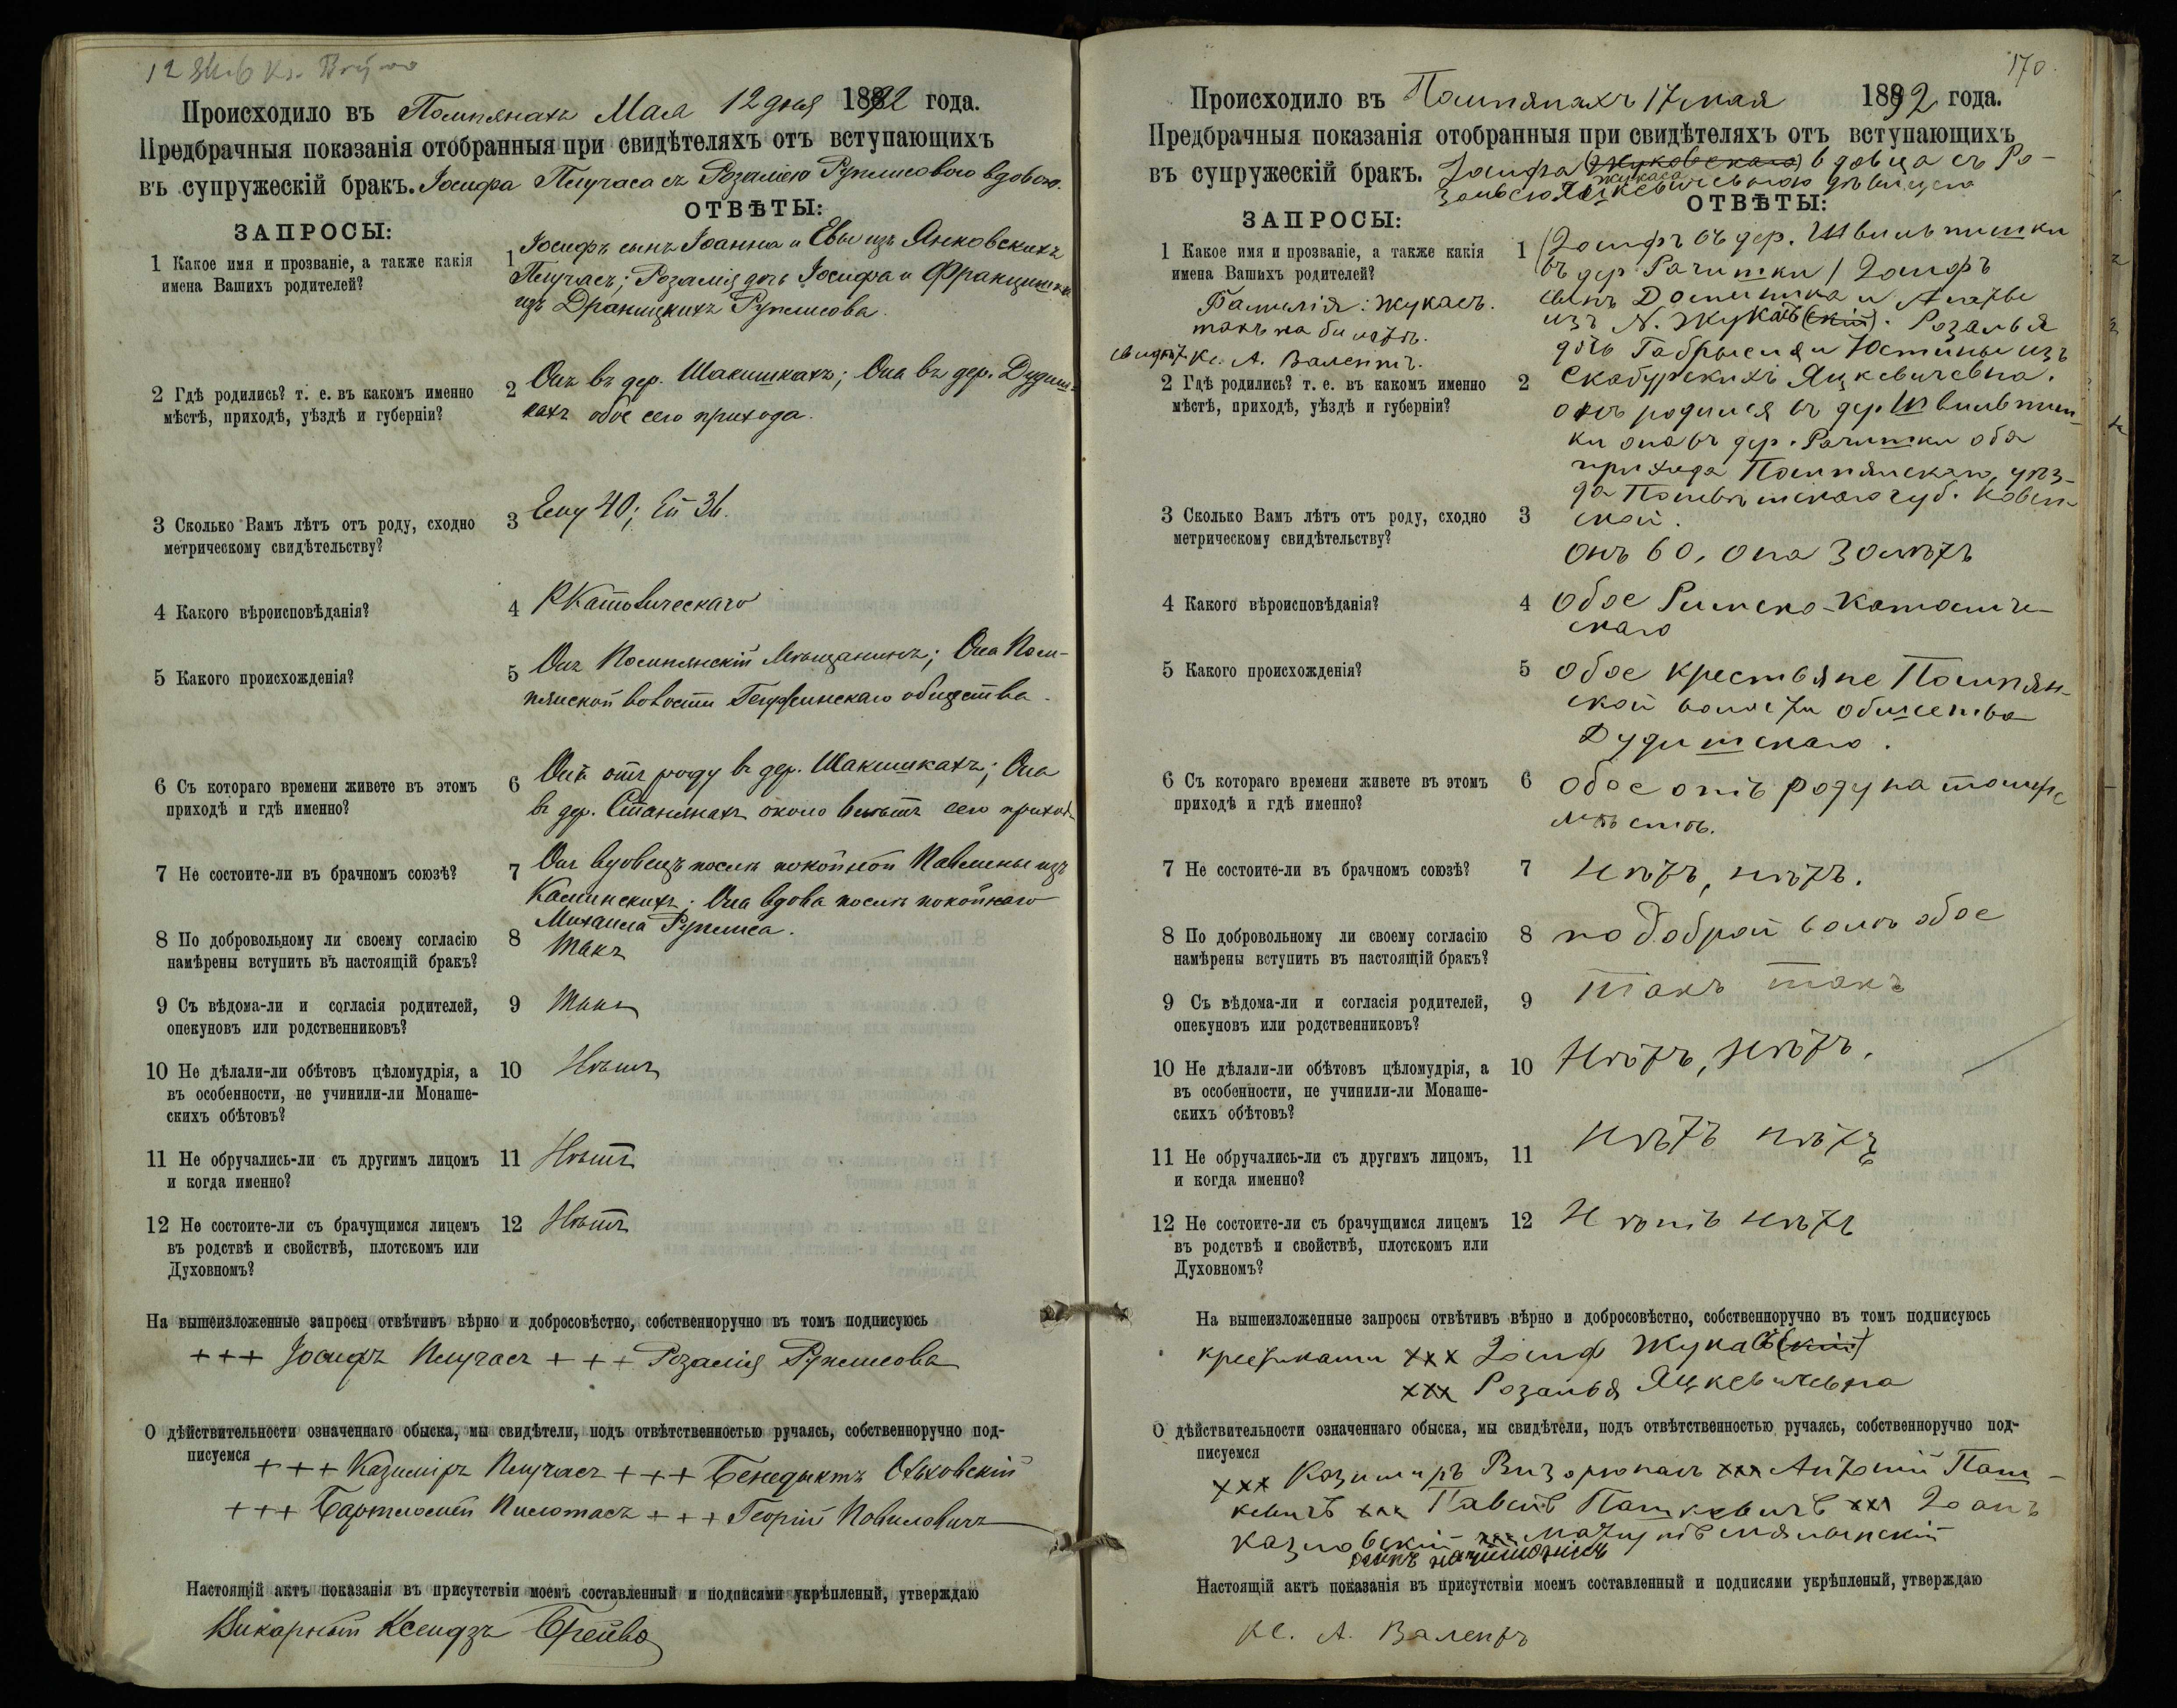 Происходило въ Помпянахъ Мая 12 дня 1892 года.
Предбрачныя показанія отобранныя при свидѣтеляхъ отъ вступающихъ
въ супружескій бракъ. Іосифа Плучаса съ Розаліею вдовою.
ЗАПРОСЫ:
ОТВѢТЫ:
1 Какое имя и прозваніе, а также какія
имена Вашихъ родителей?
1 Іосифъ сынъ Іоанна и Евы изъ Янковскихъ
Плучасъ; Розалія дочь Іосифа и
изъ
2 Гдѣ родились? т. е. въ какомъ именно
мѣстѣ, приходѣ, уѣздѣ и губерніи?
2 Онъ въ дер. Шакишкахъ; Она въ дер. Дудиш-
кахъ обое сего прихода.
3 Сколько Вамъ лѣтъ отъ роду, сходно
метрическому свидѣтельству?
3 Ему 40; Ей 36.
4 Какого вѣроисповѣданія?
4 РКатолическаго
5 Какого происхожденія?
5 Онъ Помпянскій Мѣщанинъ; Она Пом-
пянской волости общества.
6 Съ котораго времени живете въ этомъ
приходѣ и гдѣ именно?
6 Онъ отъ роду въ дер. Шакишкахъ; Она
въ дер. Станянахъ около сего прихода
7 Не состоите-ли въ брачномъ союзѣ?
7 Онъ вдовецъ послѣ покойной изъ
Каминскихъ; Она вдова послѣ покойнаго
Михаила
8 По добровольному ли своему согласію
намѣрены вступить въ настоящій бракъ?
8 Такъ
9 Съ вѣдома-ли и согласія родителей,
опекуновъ или родственниковъ?
9 Такъ
10 Не дѣлали-ли обѣтовъ цѣломудрія, а
въ особенности, не учинили-ли Монаше-
скихъ обѣтовъ?
10 Нѣтъ
11 Не обручались-ли съ другимъ лицомъ
и когда именно?
11 Нѣтъ
12 Не состоите-ли съ брачущимся лицемъ
въ родствѣ и свойствѣ, плотскомъ или
Духовномъ?
12 Нѣтъ
На вышеизложенные запросы отвѣтивъ вѣрно и добросовѣстно, собственноручно въ томъ подписуюсь
+++ Іосифъ Плучасъ +++ Розалія
О дѣйствительности означеннаго обыска, мы свидѣтели, подъ отвѣтственностью ручаясь, собственноручно под-
писуемся +++ Казиміръ Плучасъ +++ Бенедыктъ
+++ Бартломей Пилотасъ +++ Георгій Повиловичъ
Настоящій актъ показанія въ присутствіи моемъ составленный и подписями укрѣпленый, утверждаю
Викарный Ксендзъ
170.
Происходило въ Помпянахъ 17 мая 1892 года.
Предбрачныя показанія отобранныя при свидѣтеляхъ отъ вступающихъ
въ супружескій бракъ. (Жуковскаго) вдовца съ Ро-
Жукаса
зальею Яцкевичевною дѣвицею
ЗАПРОСЫ:
ОТВѢТЫ:
1 Какое имя и прозваніе, а также какія
имена Вашихъ родителей?
Фамилія: Жукасъ.
такъ на билетѣ.
Кс. А. Валентъ.
1 (Іосифъ въ дер. Швильпишки
въ дер. Рачишки) Іосифъ
сынъ Доминика и Агаты
изъ N. Жукасъ(скій). Розалья
дочь Габрыеля и Юстины изъ
Скабурскихъ Яцкевичевна.
2 Гдѣ родились? т. е. въ какомъ именно
мѣстѣ, приходѣ, уѣздѣ и губерніи?
2 онъ родился въ дер Швильпиш-
ки она въ дер. Рачишки оба
прихода Помпянскаго, уѣз-
да губ. Ковен-
ской.
3 Сколько Вамъ лѣтъ отъ роду, сходно
метрическому свидѣтельству?
3 онъ 60, она 30 лѣтъ
4 Какого вѣроисповѣданія?
4 обое Римско-Католиче-
скаго
5 Какого происхожденія?
5 обое крестьяне Помпян-
ской волости общества
Дудишскаго.
6 Съ котораго времени живете въ этомъ
приходѣ и гдѣ именно?
6 обое отъ роду на томже
мѣстѣ.
7 Не состоите-ли въ брачномъ союзѣ?
7 Нѣтъ, нѣтъ.
8 По добровольному ли своему согласію
намѣрены вступить въ настоящій бракъ?
8 по доброй волѣ обое
9 Съ вѣдома-ли и согласія родителей,
опекуновъ или родственниковъ?
9 Такъ такъ
10 Не дѣлали-ли обѣтовъ цѣломудрія, а
въ особенности, не учинили-ли Монаше-
скихъ обѣтовъ?
10 Нѣтъ, нѣтъ.
11 Не обручались-ли съ другимъ лицомъ,
и когда именно?
11 Нѣтъ нѣтъ
12 Не состоите-ли съ брачущимся лицемъ
въ родствѣ и свойствѣ, плотскомъ или
Духовномъ?
12 Нѣтъ нѣтъ
На вышеизложенные запросы отвѣтивъ вѣрно и добросовѣстно, собственноручно въ томъ подписуюсь
крестиками ххх Іосиф Жукасъ(скій)
ххх Розалья Яцкевичевна
О дѣйствительности означеннаго обыска, мы свидѣтели, подъ отвѣтственностью ручаясь, собственноручно под-
писуемся
ххх Казимиръ ххх Антоній Паш-
кевичъ ххх Павелъ Пашкевичъ ххх Іоанъ
Казловскій ххх
Настоящій актъ показанія въ присутствіи моемъ составленный и подписями укрѣпленый, утверждаю
Кс. А. Валентъ